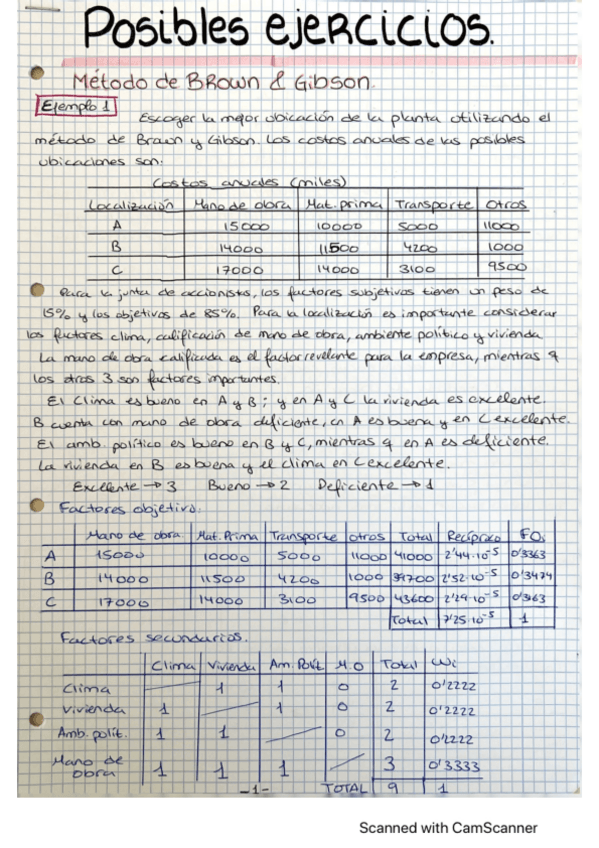 Posibles ejercicios.
Método de Brown & Gibson.
Ejemplo 1
Escoger la mejor ubicación de la planta utilizando el
método de Brawn y Gibson. Los costos anuales de las posibles
ubicaciones son:
Costos anuales (miles)
Localización Mano de obra Mat. prima Transporte Otros
A 15000 10000 5000 11000
B 14000 11500 4200 1000
C 17000 14000 3100 9500
Para la junta de accionistas, los factores subjetivos tienen un peso de
15% y los objetivos de 85%. Para la localización es importante considerar
los factores clima, calificación de mano de obra, ambiente político y vivienda
La mano de obra calificada es el factor revelante para la empresa, mientras q
los otros 3 son factores importantes.
El Clima es bueno en A y B; y en A y C la vivienda es excelente.
B cuenta con mano de obra deficiente, en A es buena y en C excelente.
El amb. político es bueno en B y C, mientras q en A es deficiente.
La vivienda en B es buena y el clima en C excelente.
Excelente → 3 Bueno → 2 Deficiente → 1
Factores objetivo.
Mano de obra Mat. Prima Transporte otros Total Recíproco FOi
A 15000 10000 5000 11000 41000 2'44·10⁻⁵ 0'3363
B 14000 11500 4200 1000 39700 2'52·10⁻⁵ 0'3474
C 17000 14000 3100 9500 43600 2'29·10⁻⁵ 0'3163
Total 7'25·10⁻⁵ 1
Factores secundarios.
Clima Vivienda Am. Polít M.O Total Wi
Clima 1 1 0 2 0'2222
Vivienda 1 1 0 2 0'2222
Amb. polít. 1 1 0 2 0'2222
Mano de obra 1 1 1 3 0'3333
-1- TOTAL 9 1
Scanned with CamScanner